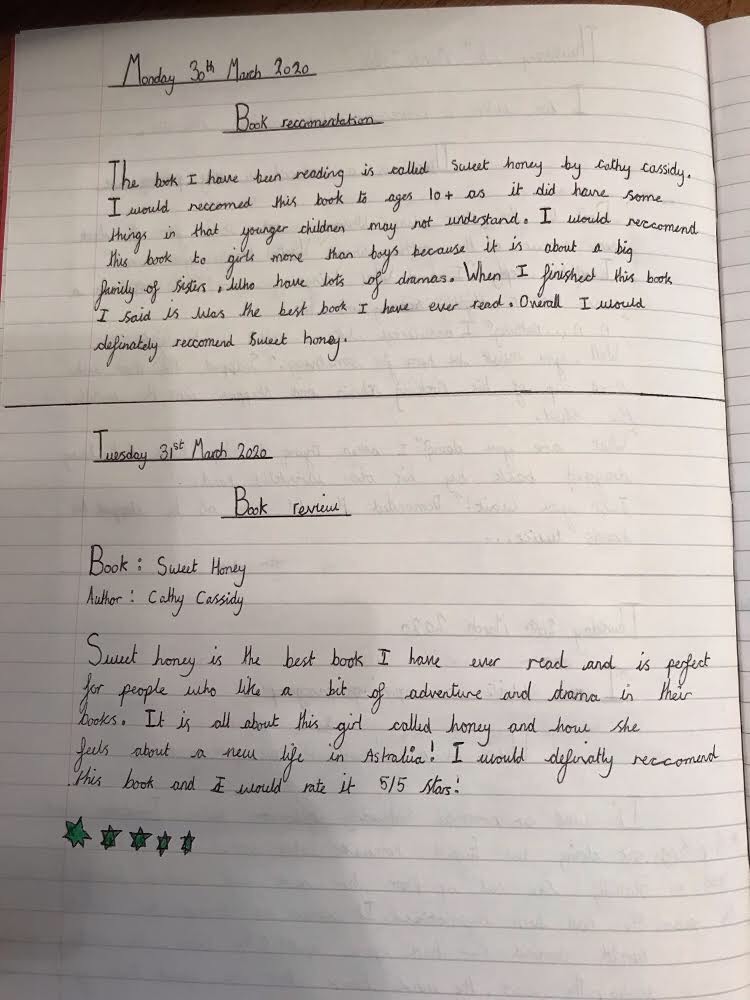 Monday 30th March 2020
Book reccomentation
The book I have been reading is called Sweet honey by cathy cassidy.
I would reccomed this book to ages 10+ as it did have some
things in that younger children may not understand. I would reccomend
this book to girls more than boys because it is about a big
family of sisters, who have lots of dramas. When I finished this book
I said is was the best book I have ever read. Overall I would
definately reccomend Sweet honey.
Tuesday 31st March 2020
Book review
Book: Sweet Honey
Author: Cathy Cassidy
Sweet honey is the best book I have ever read and is perfect
for people who like a bit of adventure and drama in their
books. It is all about this girl called honey and how she
feels about a new life in Astralia! I would definatly reccomend
this book and I would rate it 5/5 stars!